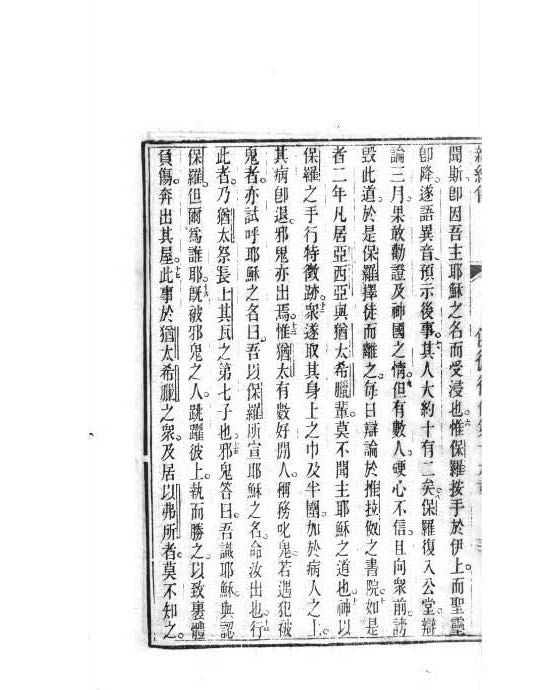 聞斯卽因吾主耶穌之名而受浸也惟保羅按手於伊上而聖靈
卽降遂語異音預示後事其人大約十有二矣保羅復入公堂辯
論三月果敢勸證及神國之情但有數人硬心不信且向衆前謗
毀此道於是保羅擇徒而離之每日辯論於推拉奴之書院如是
者二年凡居亞西亞與猶太希臘輩莫不聞主耶穌之道也神以
保羅之手行特徵跡衆遂取其身上之巾及半圍加於病人之上
其病卽退邪鬼亦出焉惟猶太有數好閒人稱務叱鬼若遇犯被
鬼者亦試呼耶穌之名曰吾以保羅所宣耶穌之名命汝出也行
此者乃猶太祭長上其瓦之第七子也邪鬼答曰吾識耶穌與認
保羅但爾爲誰耶旣被邪鬼之人跳躍彼上執而勝之以致裹體
負傷奔出其屋此事於猶太希臘之衆及居以弗所者莫不知之